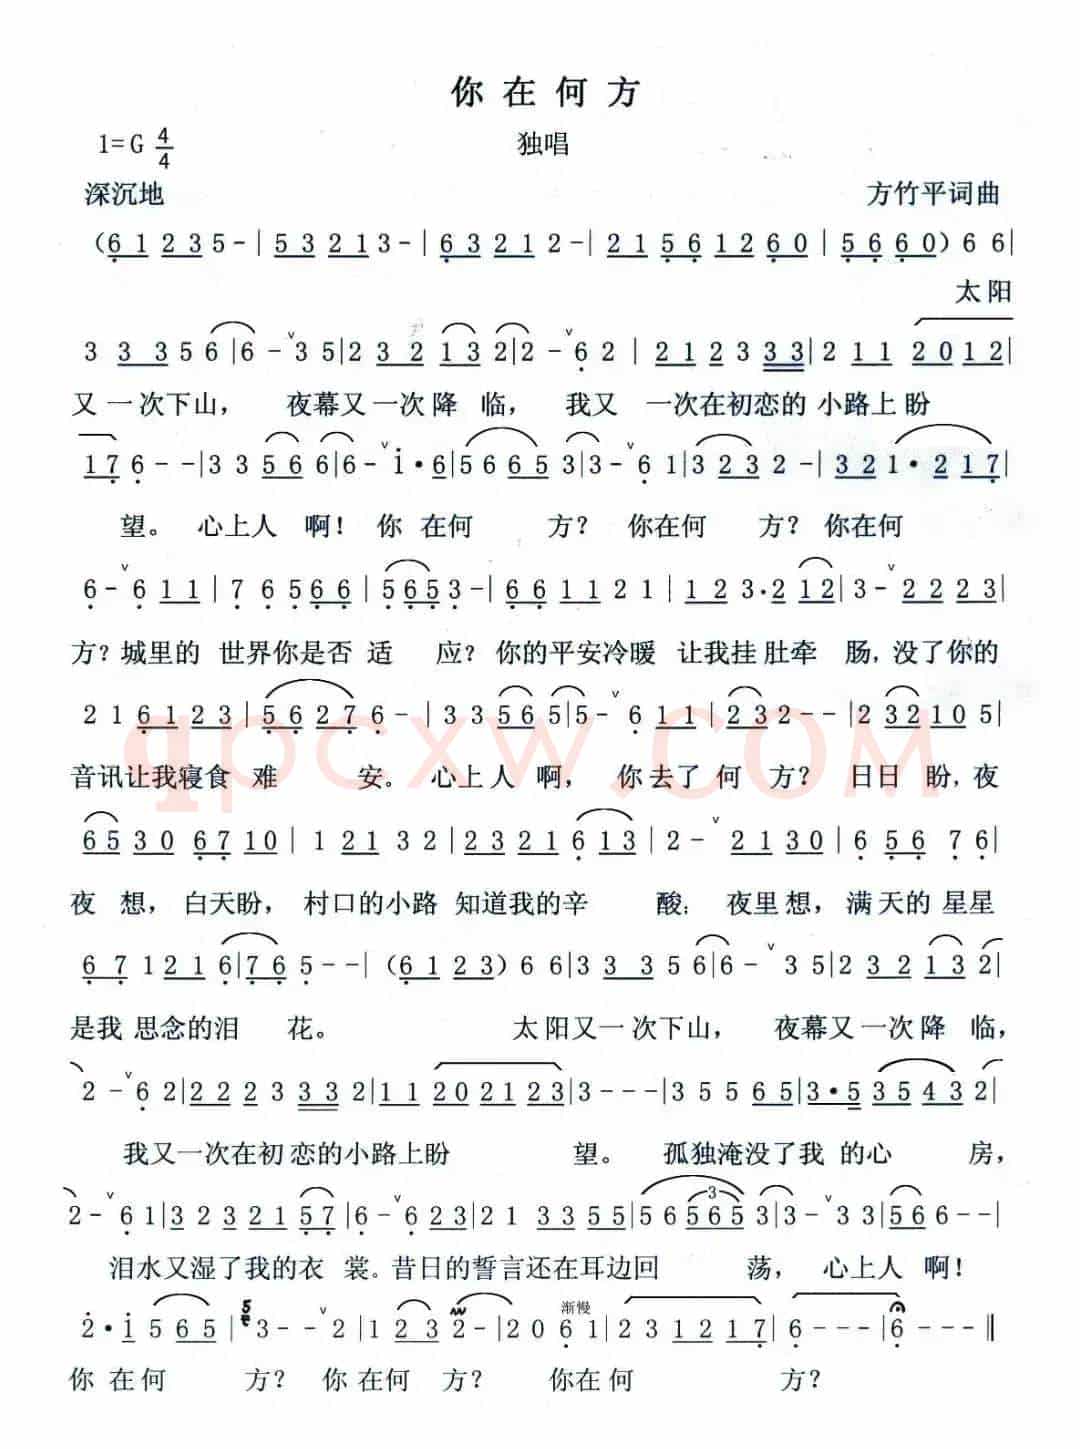 你在何方
1=G 4/4
独唱
深沉地
方竹平词曲
(6 1 2 3 5 - | 5 3 2 1 3 - | 6 3 2 1 2 - | 2 1 5 6 1 2 6 0 | 5 6 6 0) 6 6 |
太阳
3 3 3 5 6 | 6 - ᵛ 3 5 | 2 3 2 1 3 2 | 2 - ᵛ 6 2 | 2 1 2 3 3 3 | 2 1 1 2 0 1 2 |
又一次下山， 夜幕又一次降 临， 我又 一次在初恋的 小路上盼
1 7 6 - - | 3 3 5 6 6 | 6 - ᵛ i · 6 | 5 6 6 5 3 | 3 - ᵛ 6 1 | 3 2 3 2 - | 3 2 1 · 2 1 7 |
望。 心上人 啊！ 你 在何 方？ 你在何 方？ 你在何
6 - ᵛ 6 1 1 | 7 6 5 6 6 | 5 6 5 3 - | 6 6 1 1 2 1 | 1 2 3 · 2 1 2 | 3 - 2 2 2 3 |
方？城里的 世界你是否 适 应？你的平安冷暖 让我挂肚牵 肠，没了你的
2 1 6 1 2 3 | 5 6 2 7 6 - | 3 3 5 6 5 | 5 - ᵛ 6 1 1 | 2 3 2 - - | 2 3 2 1 0 5 |
音讯让我寝食 难 安。 心上人 啊， 你去了何 方？ 日日 盼，夜
6 5 3 0 6 7 1 0 | 1 2 1 3 2 | 2 3 2 1 6 1 3 | 2 - ᵛ 2 1 3 0 | 6 5 6 7 6 |
夜 想， 白天盼， 村口的小路 知道我的辛 酸；夜里想，满天的星星
6 7 1 2 1 6 | 7 6 5 - - | (6 1 2 3) 6 6 | 3 3 3 5 6 | 6 - ᵛ 3 5 | 2 3 2 1 3 2 |
是我 思念的泪 花。 太阳又一次下山， 夜幕又一次降 临，
2 - ᵛ 6 2 | 2 2 2 3 3 3 2 | 1 1 2 0 2 1 2 3 | 3 - - - | 3 5 5 6 5 | 3 · 5 3 5 4 3 2 |
我又一次在初恋的小路上盼 望。 孤独淹没了我 的心 房，
2 - ᵛ 6 1 | 3 2 3 2 1 5 7 | 6 - ᵛ 6 2 3 | 2 1 3 3 5 5 | 5 6 5 6 5 3 | 3 - ᵛ 3 3 | 5 6 6 - - |
泪水又湿了我的衣 裳。昔日的誓言还在耳边回 荡， 心上人 啊！
渐慢
2 · i 5 6 5 | 3 - - ᵛ 2 | 1 2 3 2 - | 2 0 6 1 | 2 3 1 2 1 7 | 6 - - - | 6 - - - ‖
你 在何 方？ 你 在何 方？ 你在何 方？
qpcxw.COM